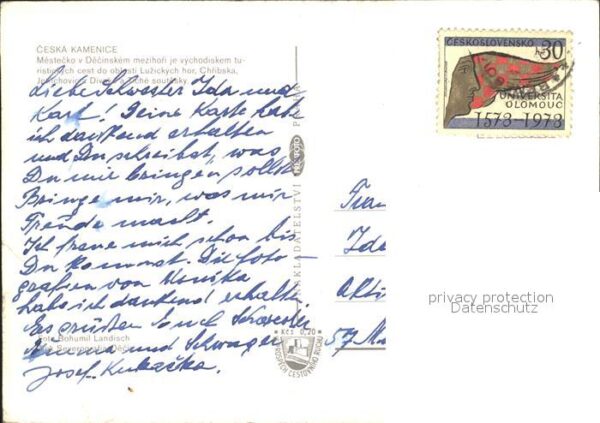 ČESKÁ KAMENICE
Městečko v Děčínském mezihoří je východiskem tu-
ristických cest do oblasti Lužických hor, Chřibska,
Jetřichovic, a Tiché soutěsky.
Liebe Schwester Ida und
Karl! Deine Karte habe
ich dankend erhalten
und Du schreibst, was
Du mir bringen sollst.
Bringe mir, was mir
Freude macht.
Ich freue mich schon bis
Du kommst. Die Foto-
grafien von Monika
habe ich dankend erhalten.
Es grüßen Euch Schwester
Anna und Schwager
Josef Kubačka.
Foto Bohumil Landisch
Severografia Děčín
NAKLADATELSTVÍ
PRAHA
Kčs 0,20
CESTOVNÍHO RUCHU
ČESKOSLOVENSKO 30
UNIVERSITA
OLOMOUC
1573-1973
Frau
Ida
57
privacy protection
Datenschutz